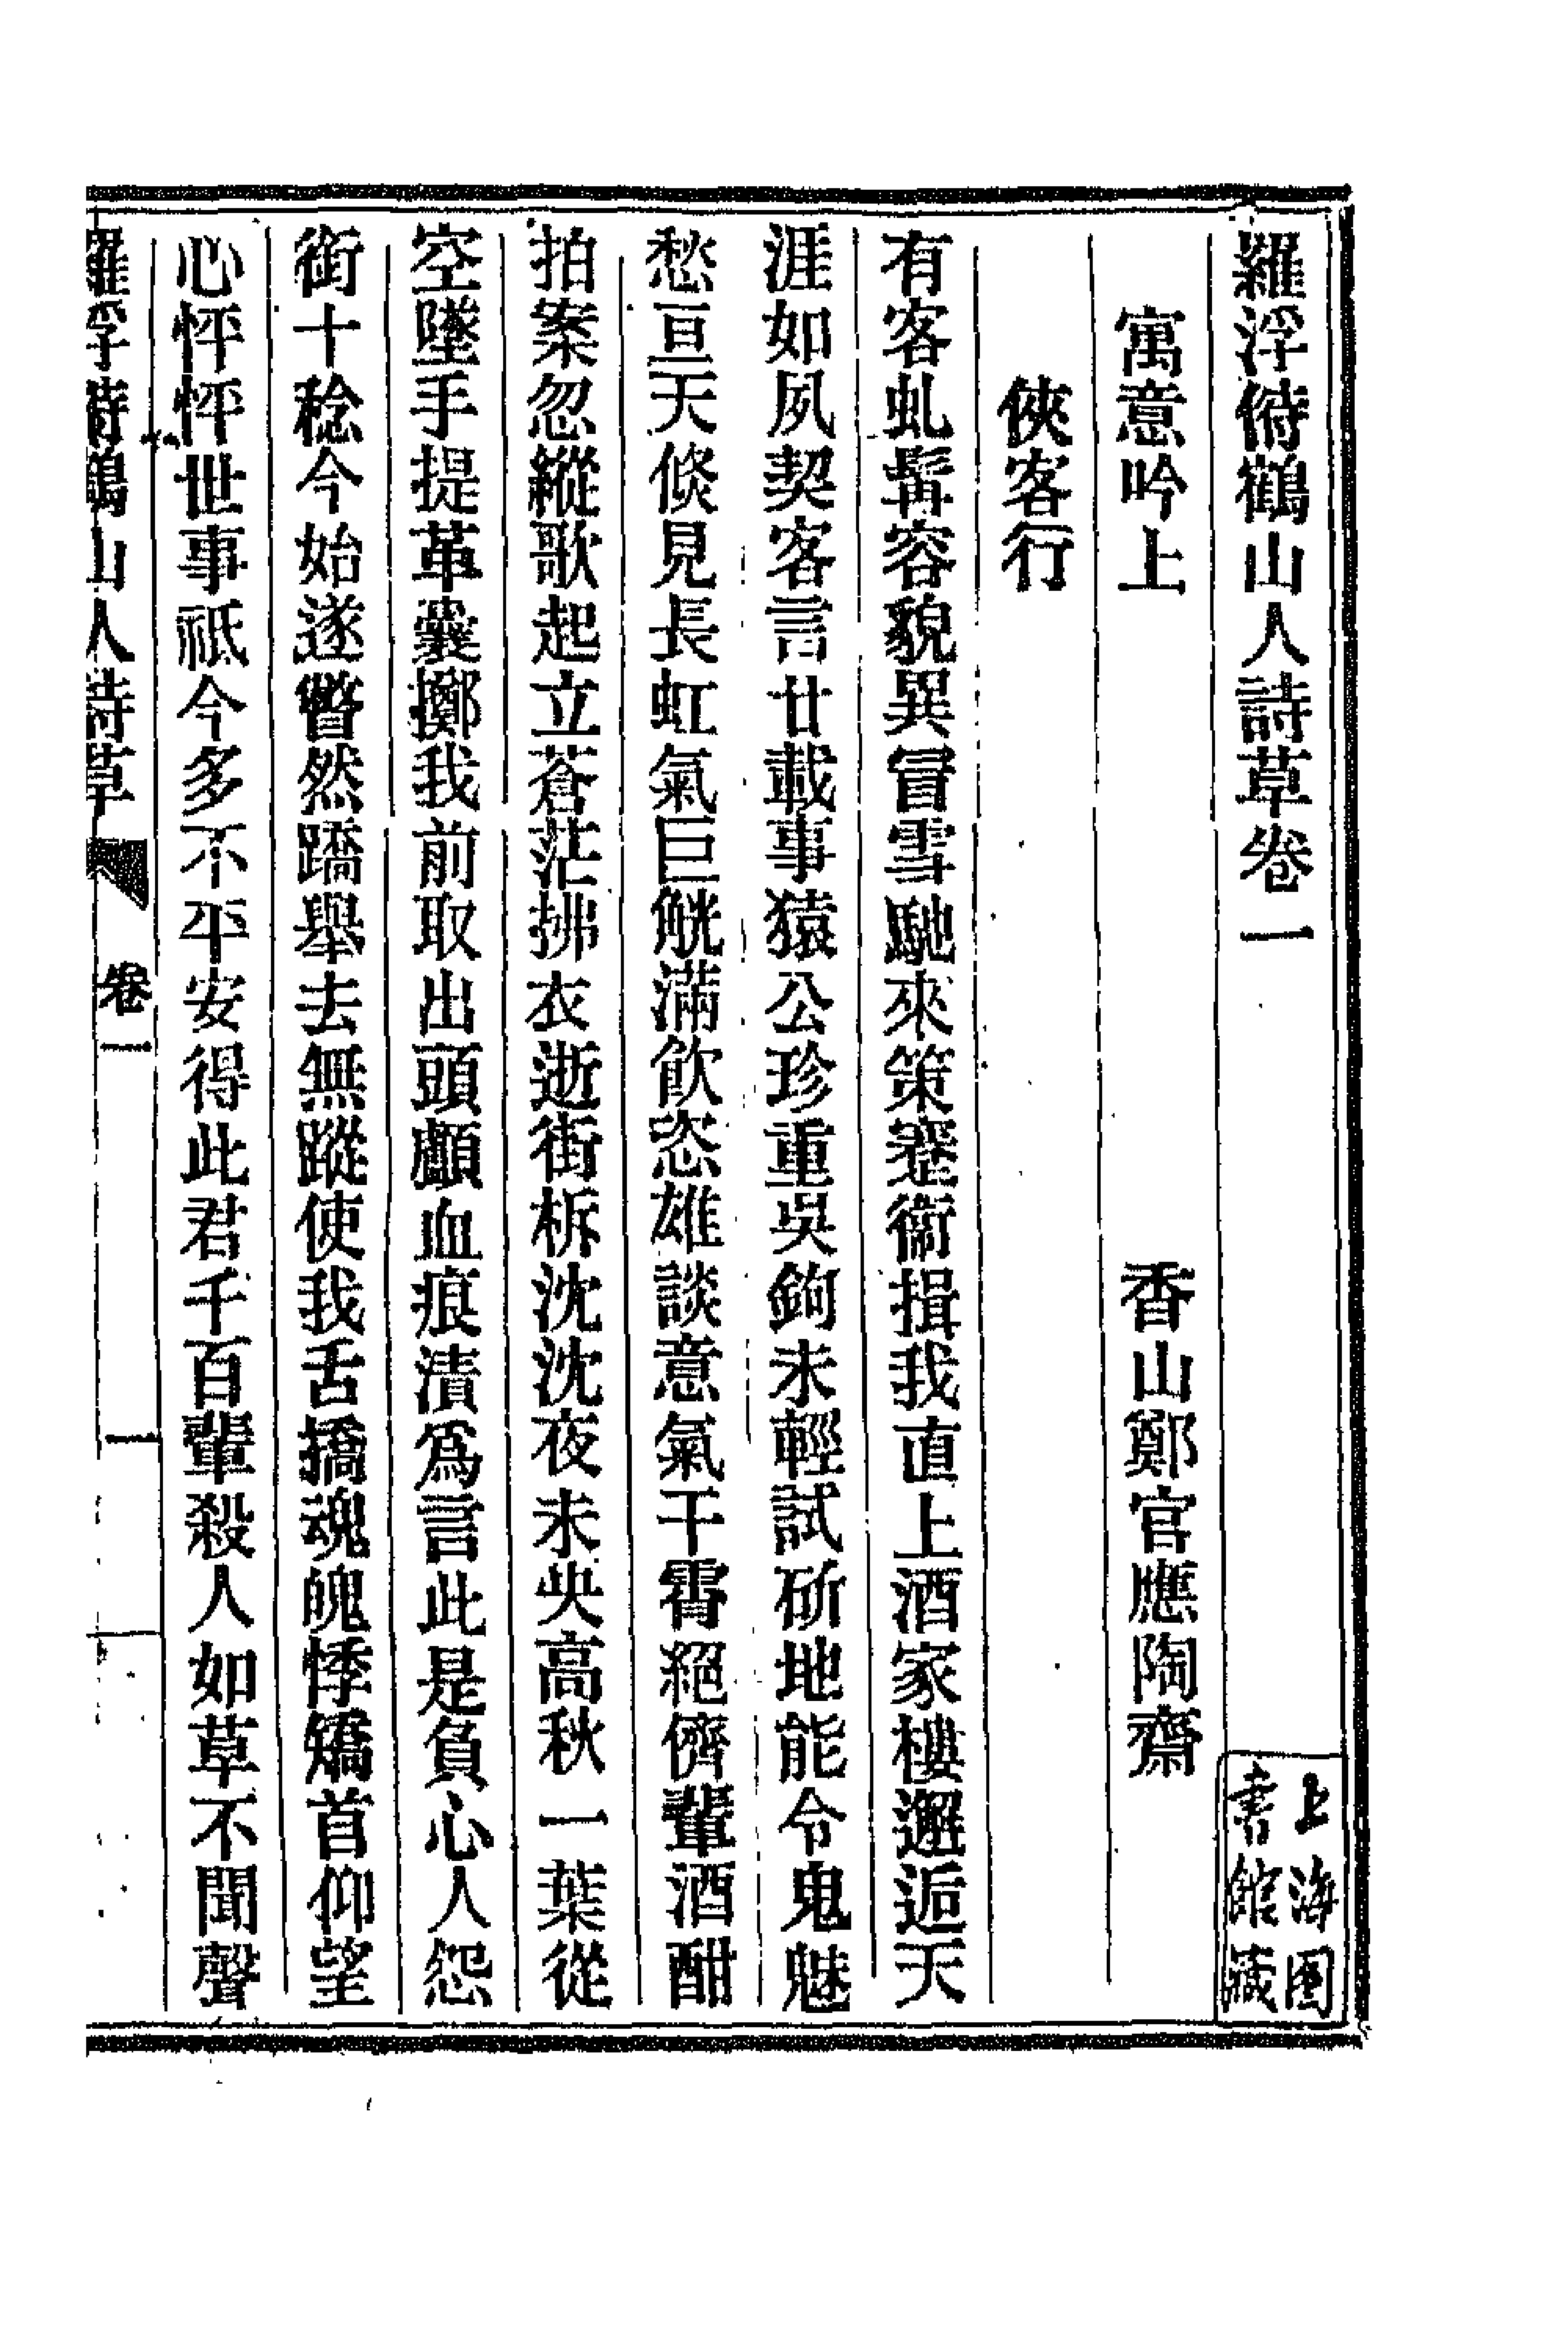 羅浮偫鶴山人詩草卷一
寓意吟上
香山鄭官應陶齋
俠客行
有客虬髯容貌異冒雪馳來策蹇衞揖我直上酒家樓邂逅天
涯如夙契客言廿載事猿公珍重吳鉤未輕試斫地能令鬼魅
愁亘天倐見長虹氣巨觥滿飮恣雄談意氣干霄絕儕輩酒酣
拍案忽縱歌起立蒼茫拂衣逝街柝沈沈夜未央高秋一葉從
空墜手提革囊擲我前取出頭顱血痕漬爲言此是負心人怨
銜十稔今始遂瞥然蹻舉去無蹤使我舌撟魂魄悸矯首仰望
心怦怦世事祗今多不平安得此君千百輩殺人如草不聞聲
羅浮偫鶴山人詩草
卷一
一
上海圖
書館藏